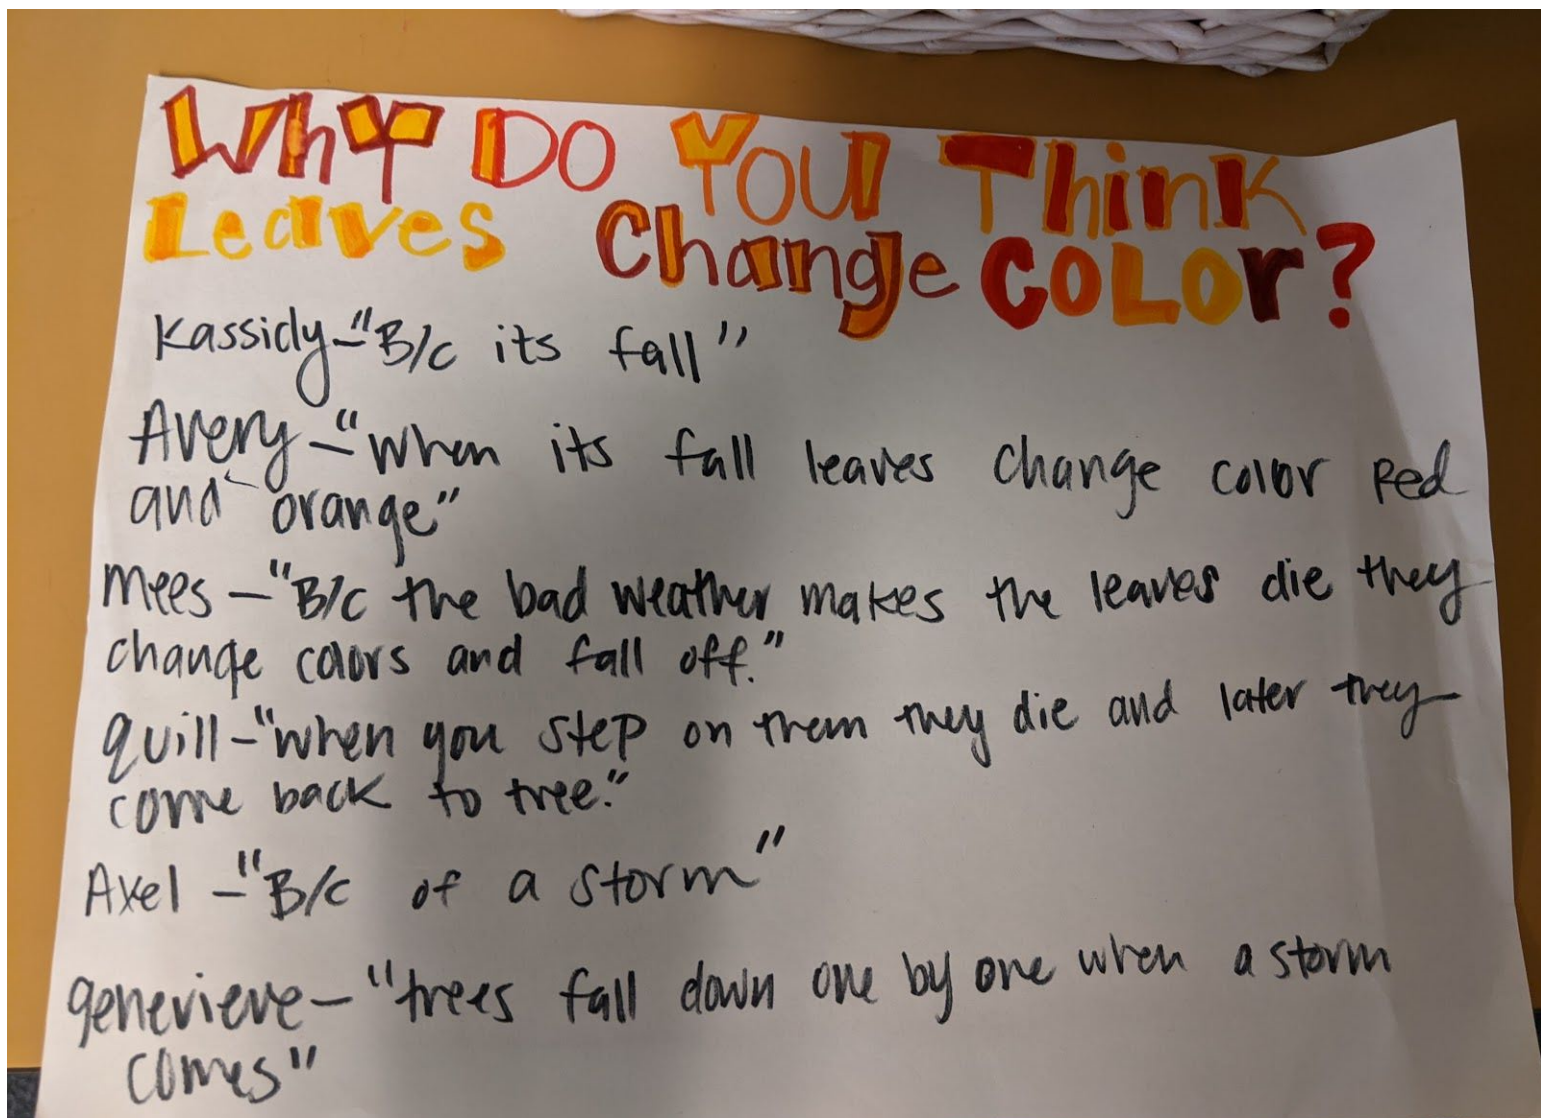 WhY DO YOU Think
Leaves Change COLOr?
Kassidy-"B/c its fall"
Avery-"when its fall leaves change color Red
and orange"
Mees-"B/c the bad weather makes the leaves die they
change colors and fall off."
quill-"when you step on them they die and later they
come back to tree."
Axel-"B/c of a storm"
genevieve-"trees fall down one by one when a storm
comes"